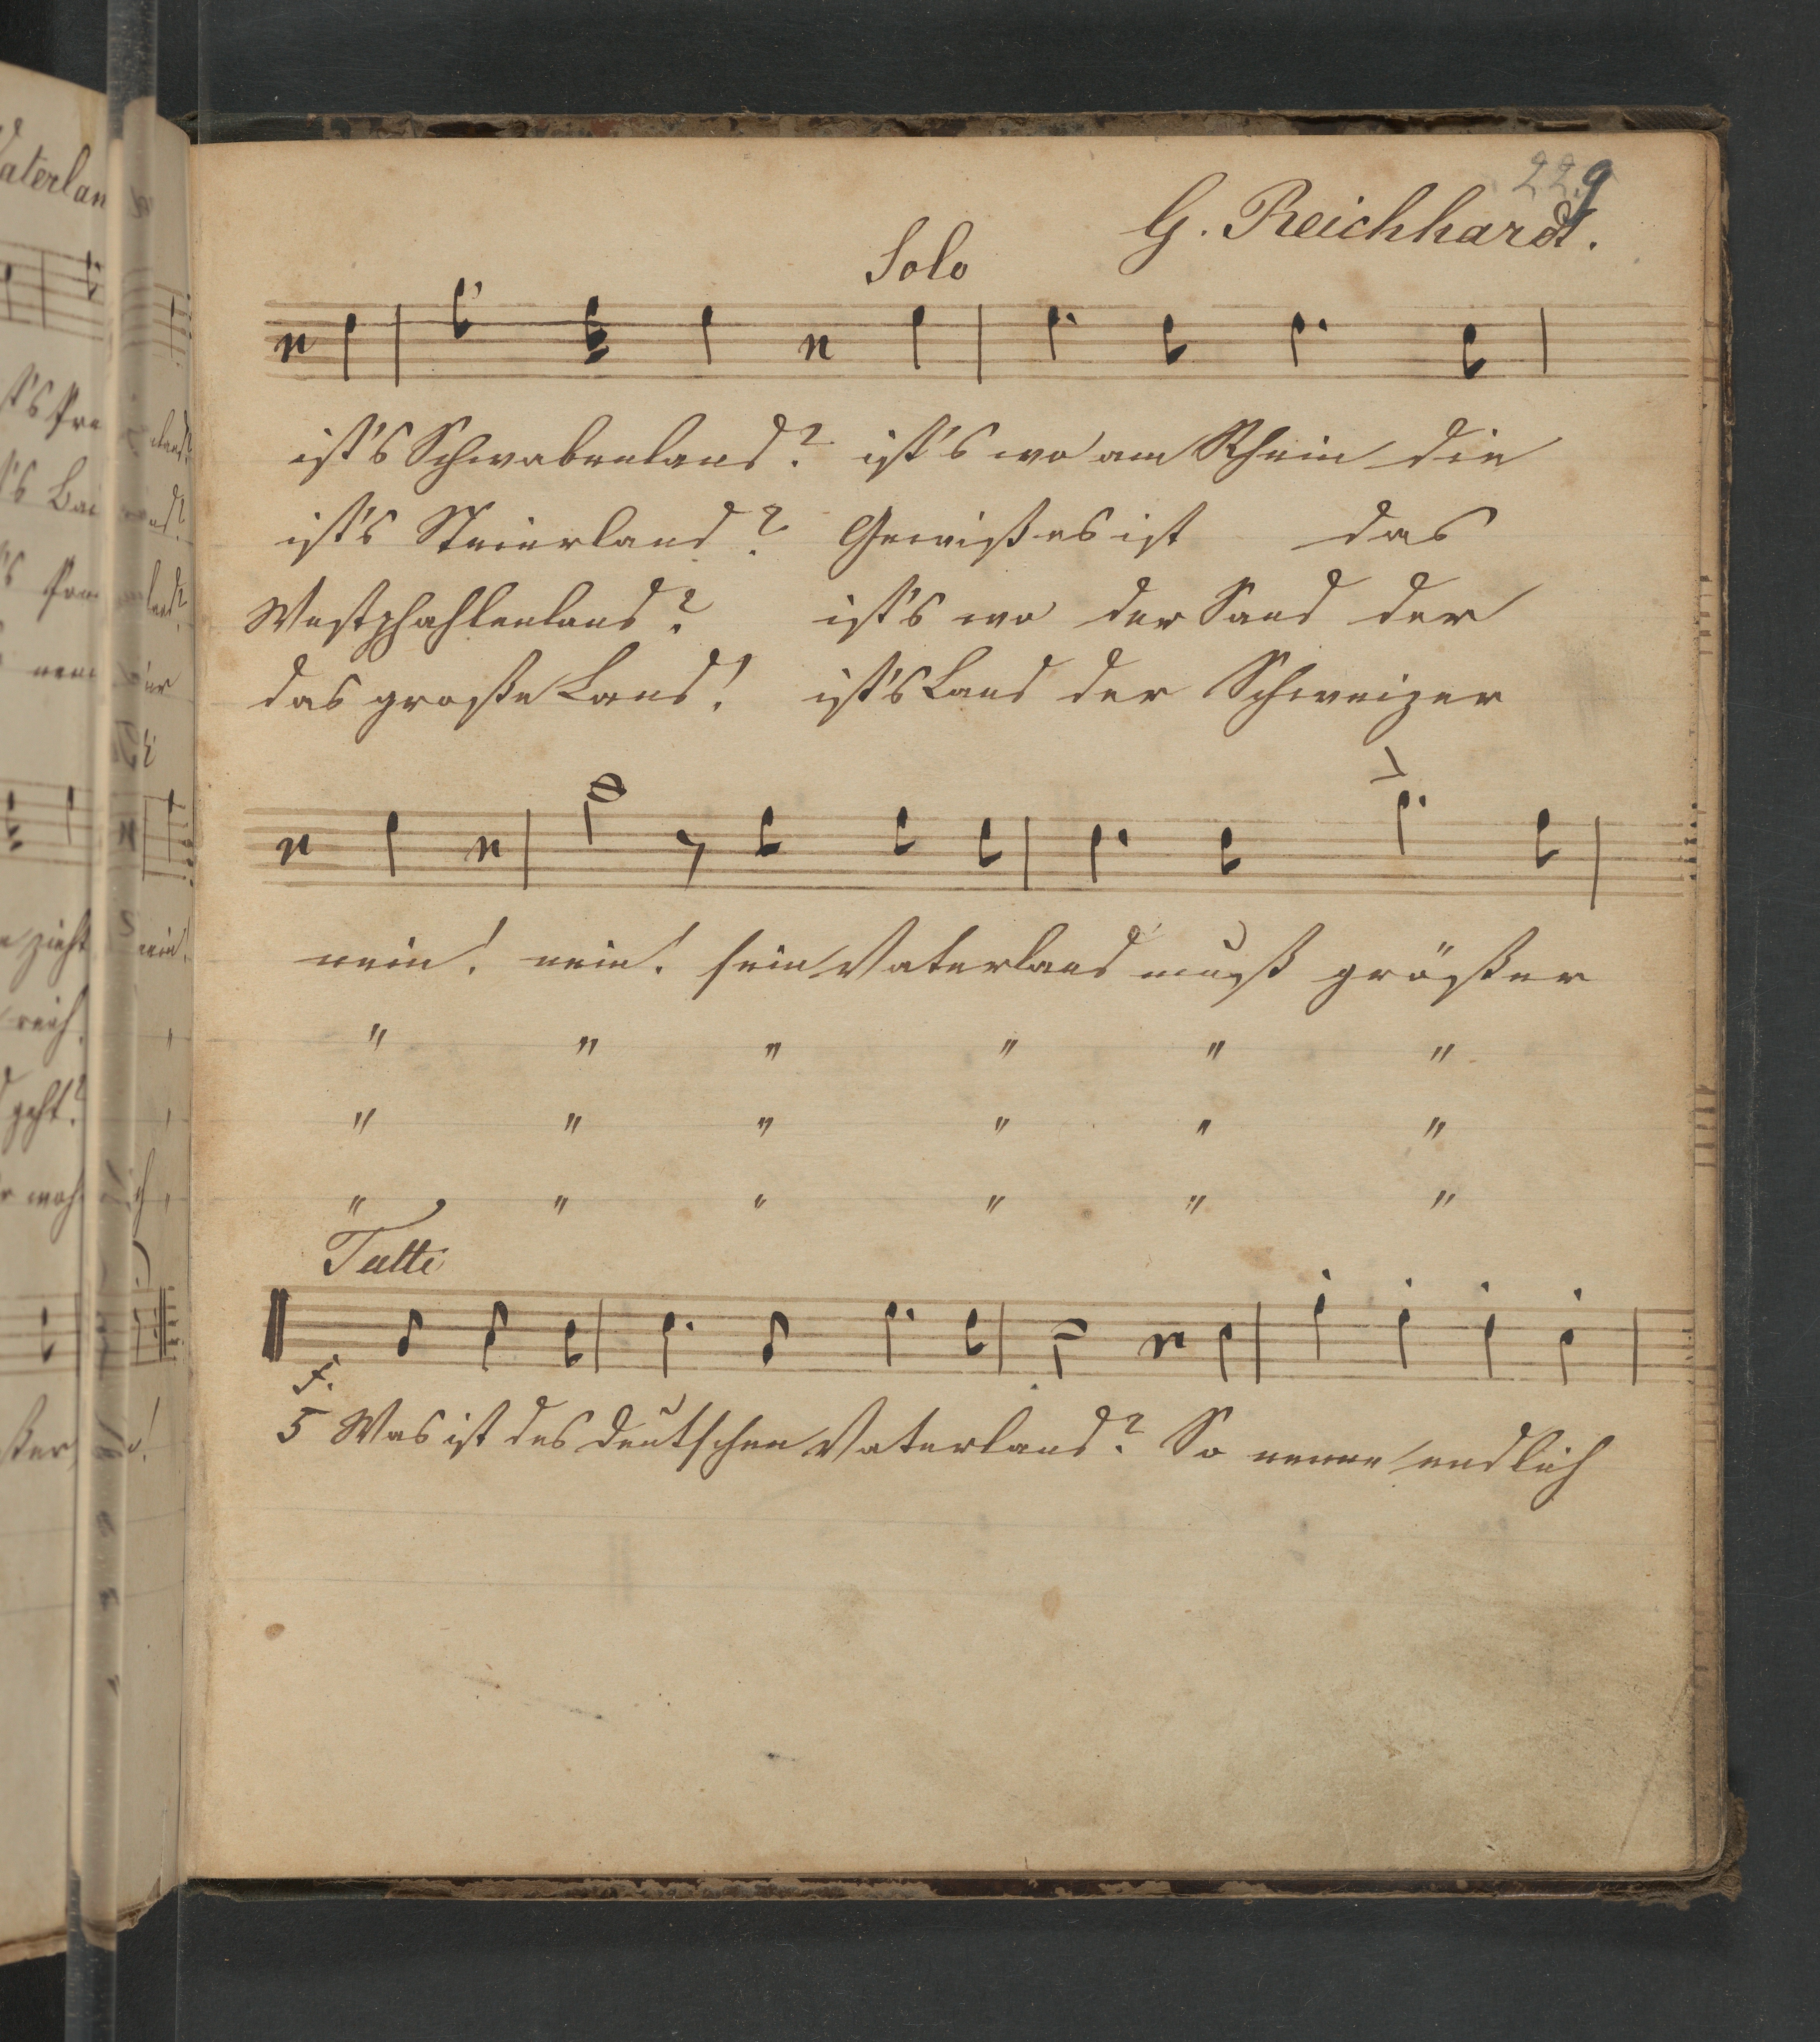 229
G. Reichhardt.
Solo
ist's Schwabenland? ist's wo am Rhein die
ist's Steierland? Gewiß es ist das
Westphahlenland? ist's wo der Sand der
das große Land! ist's Land der Schweizer
nein! nein! sein Vaterland muß größer
" " " " " "
" " " " " "
" " " " " "
Tutti
f.
5 Was ist des deutschen Vaterland? So nenne endlich